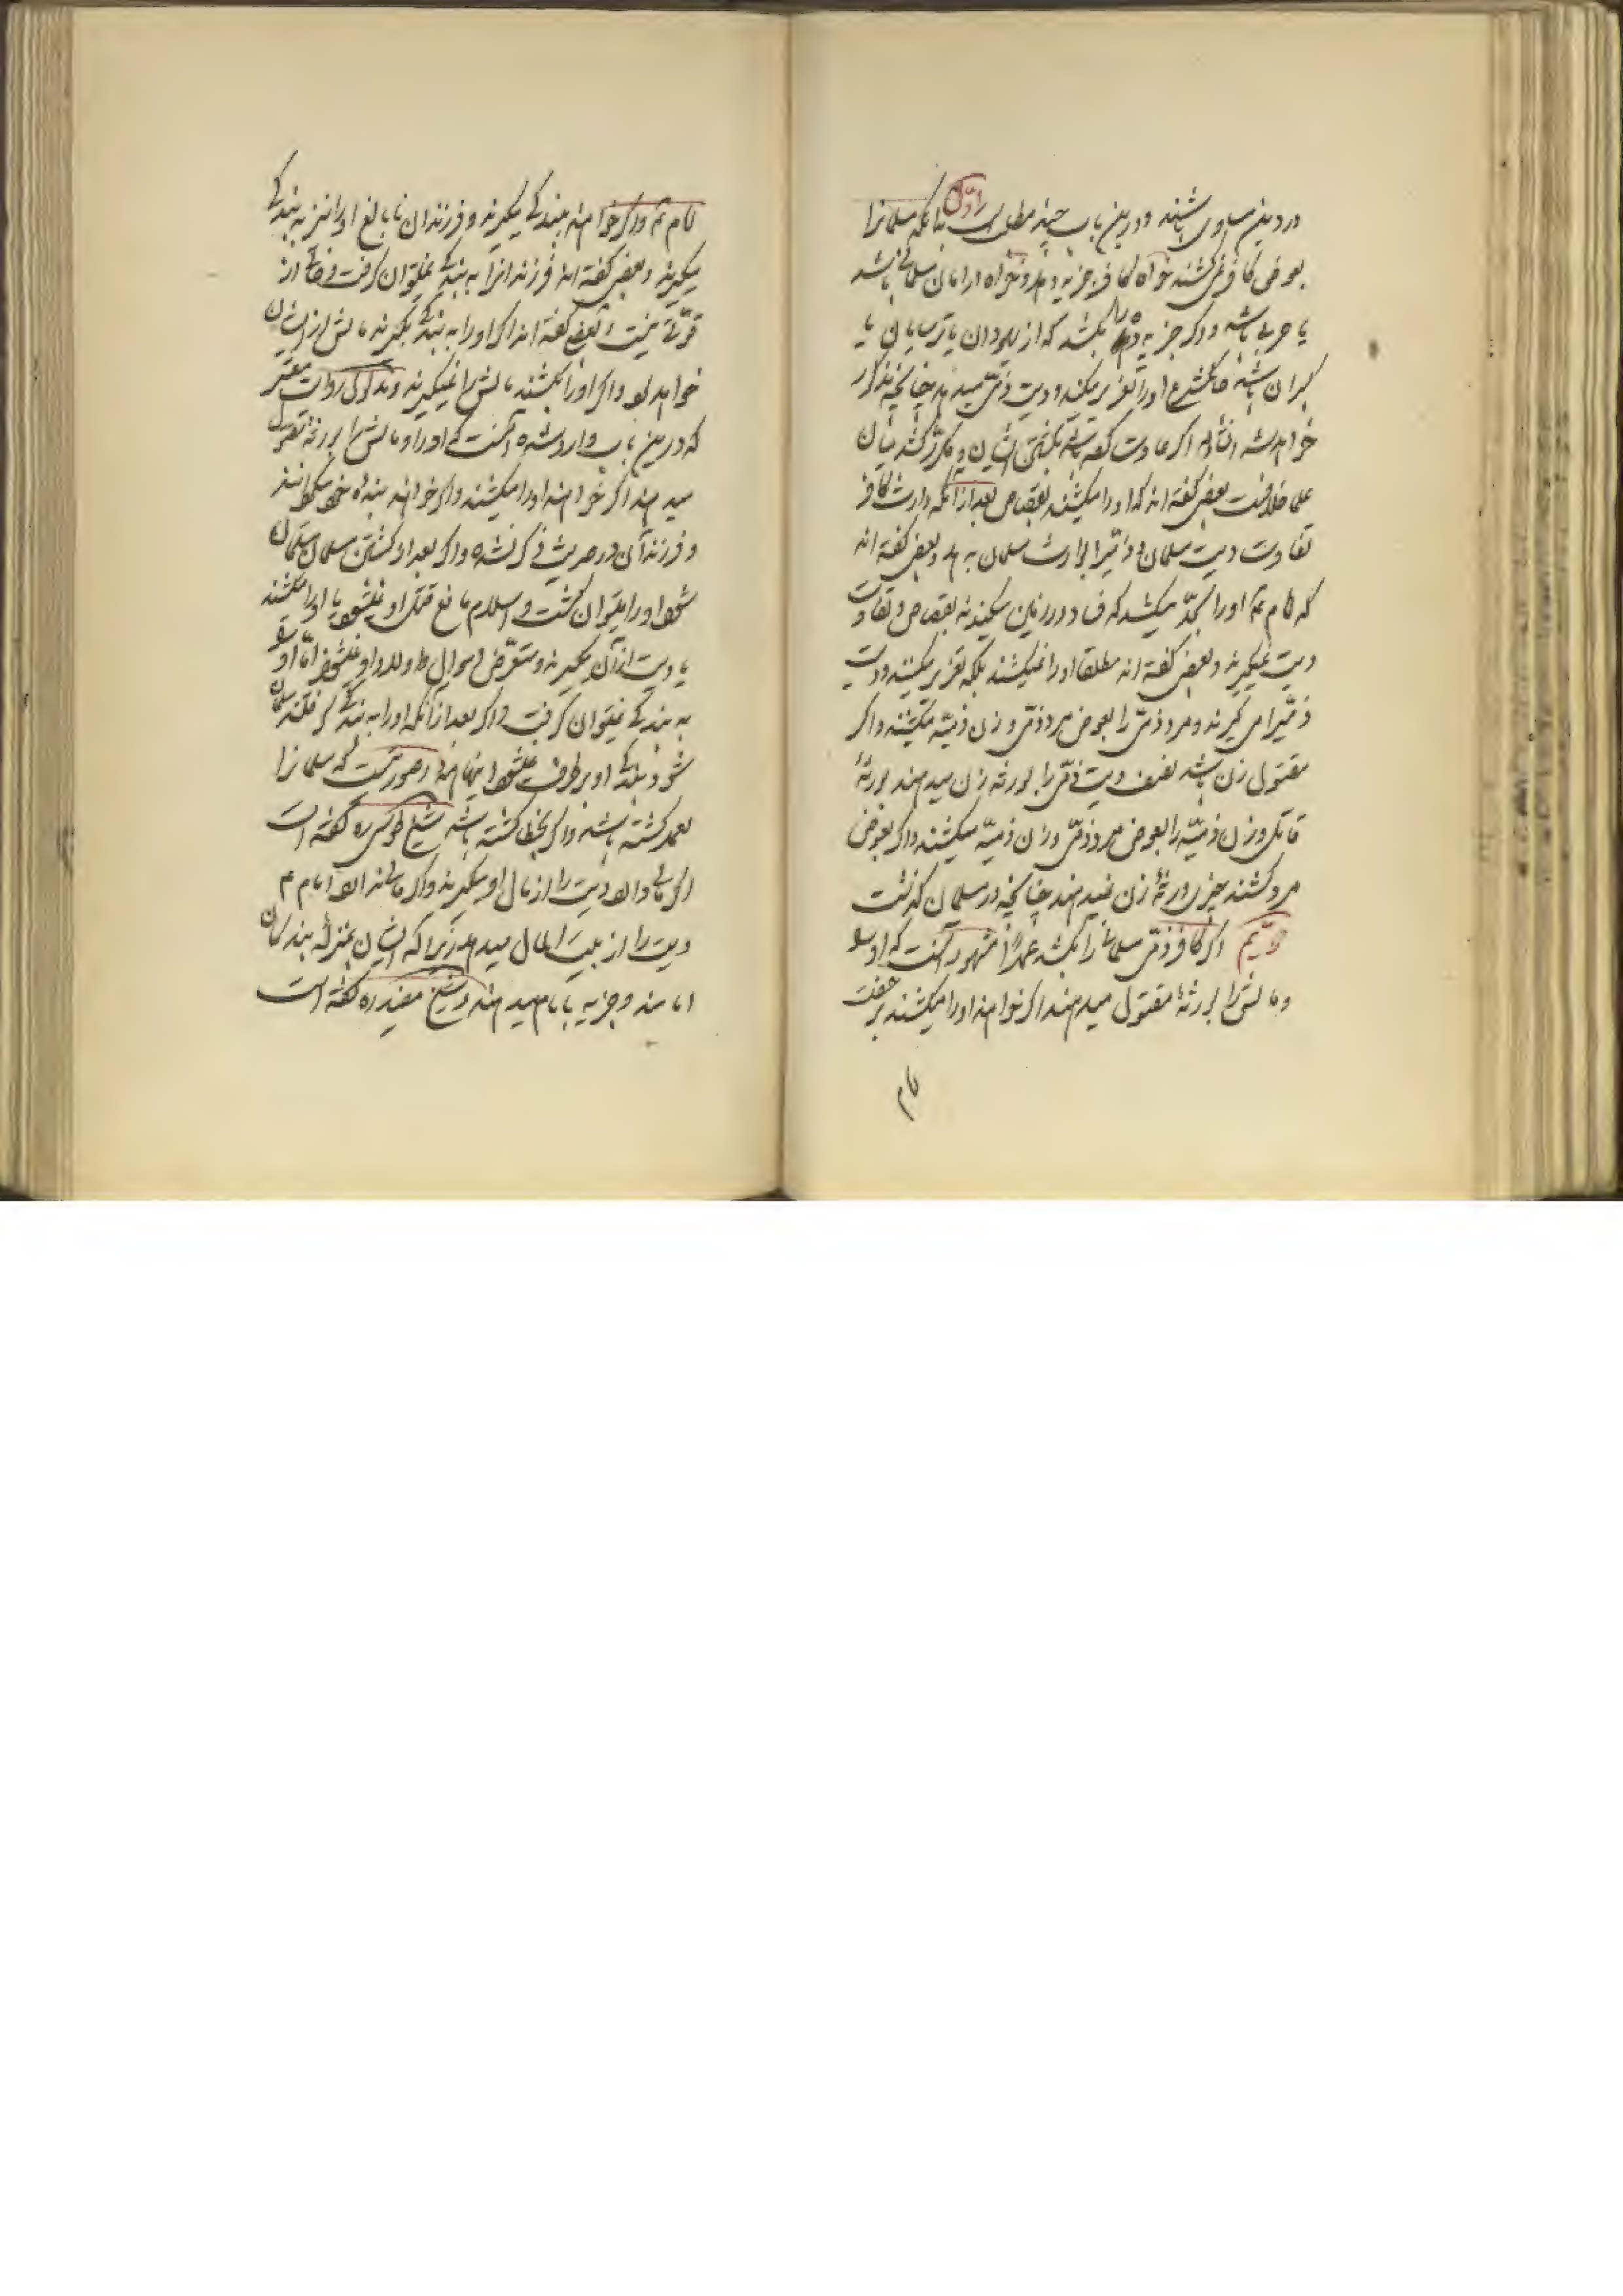 در دین مساوی باشند و درین باب چند مطلب است اوّل بدانکه مسلمانرا
بعوض کافر نمی کشند خواه کافر جزیه دهد و خواه در امان مسلمانی باشد
یا حربی باشد و اگر جزیه دهی را بکشد که از یهودان یا ترسایان یا
کبران باشد حاکم شرع او را تعزیر میکند و دیت ذمّی میدهد چنانچه مذکور
خواهد شد انشاالله اگر عادت کرده باشد بکشتن ایشان و مکرّر کشد میان
علما خلافست بعضی گفته اند که او را میکشند بقصاص بعد از آنکه وارث کافر
تفاوت دیت مسلمان و ذمّیرا بوارث مسلمان بدهد و بعضی گفته اند
که امام ع او را بحدّ میکشد که فساد در زمین میکند نه بقصاص و تفاوت
دیت نمیگیرند و بعضی گفته اند مطلقا او را نمیکشند بلکه تعزیر میکنند و دیت
ذمّیرا می گیرند و مرد ذمّی را بعوض مرد ذمّی و زن ذمّیه میکشند و اگر
مقتول زن باشد نصف دیت ذمّی را بورثه زن میدهند بورثهٔ
قاتل و زن ذمیّه را بعوض مرد ذمّی و زن ذمیّه میکشند و اگر بعوض
مرد کشند چیزی ورثهٔ زن نمیدهند چنانچه در مسلمان گذشت
دویّم اگر کافر ذمّی مسلمانی را بکشد عمداً مشهور آنست که او را
و مالش را بورثهٔ مقتول میدهند اگر خواهند او را میکشند برخصت
امام
امام ع و اگر خواهند ببندگی میگیرند و فرزندان نابالغ او را نیز به بندگی
میگیرند و بعضی گفته اند فرزند انرا به بندگی نمیتوان گرفت و خالی از
قوّتی نیست و بعضی گفته اند اگر او را به بندگی بگیرند مالش از ایشان
خواهد بود و اگر او را بکشند مالش را نمیگیرند و مدلول روایت معتبر
که درین باب وارد شده آنست که او را و مالش را بورثهٔ مقتول
میدهند اگر خواهند او را میکشند و اگر خواهند بنده خود میگردانند
و فرزند آن در حدیث ذکر نشده و اگر بعد از کشتن مسلمان مسلمان
شود او را میتوان کشت و اسلام مانع قتل او نمیشود یا او را میکشند
یا دیت از آن میگیرند و متعرّض اموال و اولاد او نمیشوند امّا او را
به بندگی نمیتوان گرفت و اگر بعد از آنکه او را به بندگی گرفتند مسلمان
شود بندگی او برطرف نمیشود اینها همه در صورتیست که مسلمانرا
بعمد کشته باشد و اگر بخطا کشته باشد شیخ طوسی ره گفته است
اگر مالی دارد دیت را از مال او میگیرند و اگر مالی ندارد امام ع
دیت را از بیت المال میدهد زیرا که ایشان بمنزلهٔ بندگان
امامند و جزیه بامام میدهند و شیخ مفید ره گفته است